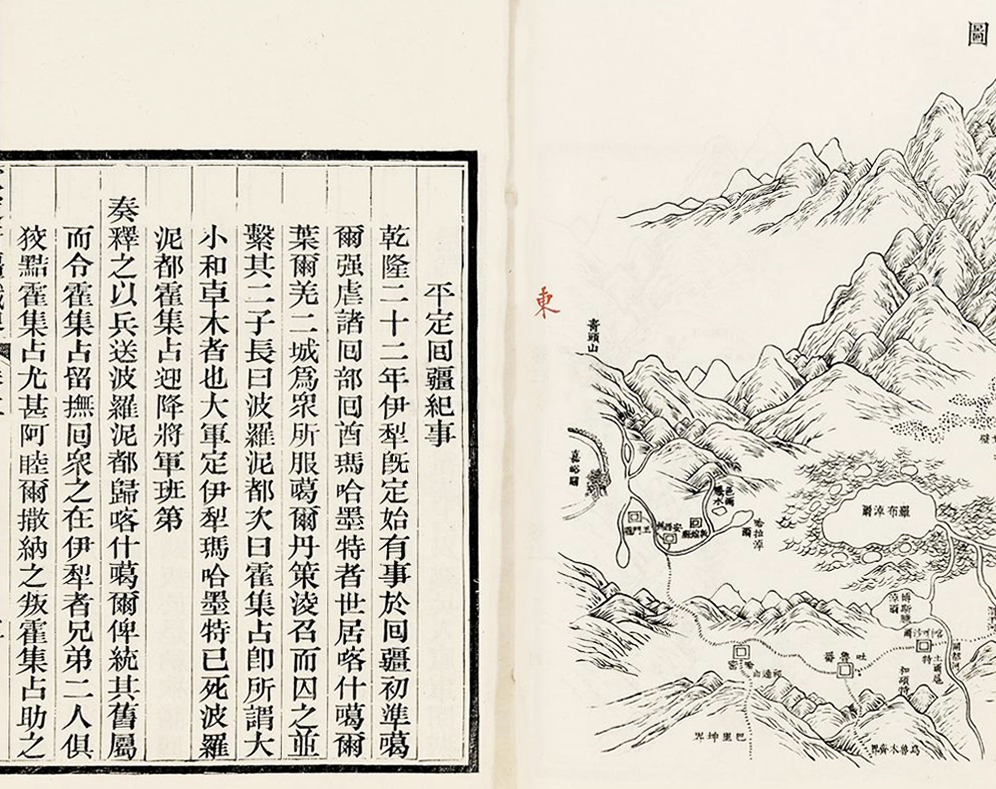 圖
東
嘉峪關
玉門縣
敦煌縣
哈拉淖爾
羅布淖爾
博斯騰淖爾
土爾扈特
和碩特
哈密
吐魯番
巴里坤界
烏魯木齊界
平定囘疆紀事
乾隆二十二年伊犁旣定始有事於囘疆初準噶
爾强虐諸囘部囘酋瑪哈墨特者世居喀什噶爾
葉爾羌二城爲衆所服噶爾丹策淩召而囚之並
繫其二子長曰波羅泥都次曰霍集占卽所謂大
小和卓木者也大軍定伊犁瑪哈墨特已死波羅
泥都霍集占迎降將軍班第
奏釋之以兵送波羅泥都歸喀什噶爾俾統其舊屬
而令霍集占留撫囘衆之在伊犁者兄弟二人俱
狡黠霍集占尤甚阿睦爾撒納之叛霍集占助之